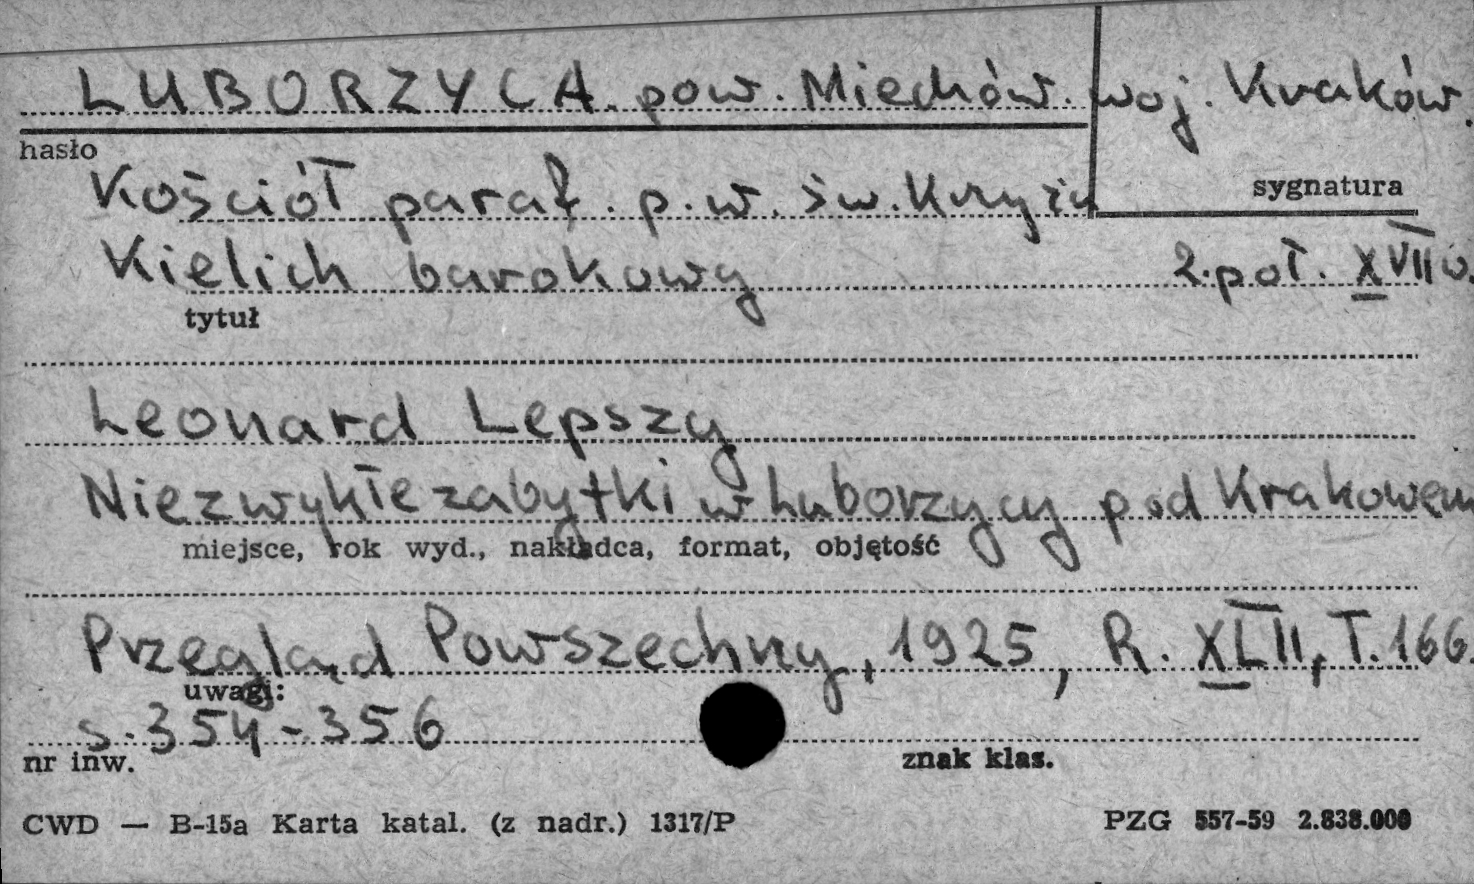 LUBORZYCA. pow. Miechów. woj. Kraków.
hasło
Kościół paraf. p.w. św. Krzyża
sygnatura
Kielich barokowy 2. poł. XVII w.
tytuł
Leonard Lepszy
Niezwykłe zabytki w Luborzycy pod Krakowem
miejsce, rok wyd., nakładca, format, objętość
Przegląd Powszechny, 1925, R. XLII, T. 166.
uwagi:
s. 354-356
nr inw. znak klas.
CWD — B-15a Karta katal. (z nadr.) 1317/P PZG 557-59 2.838.000